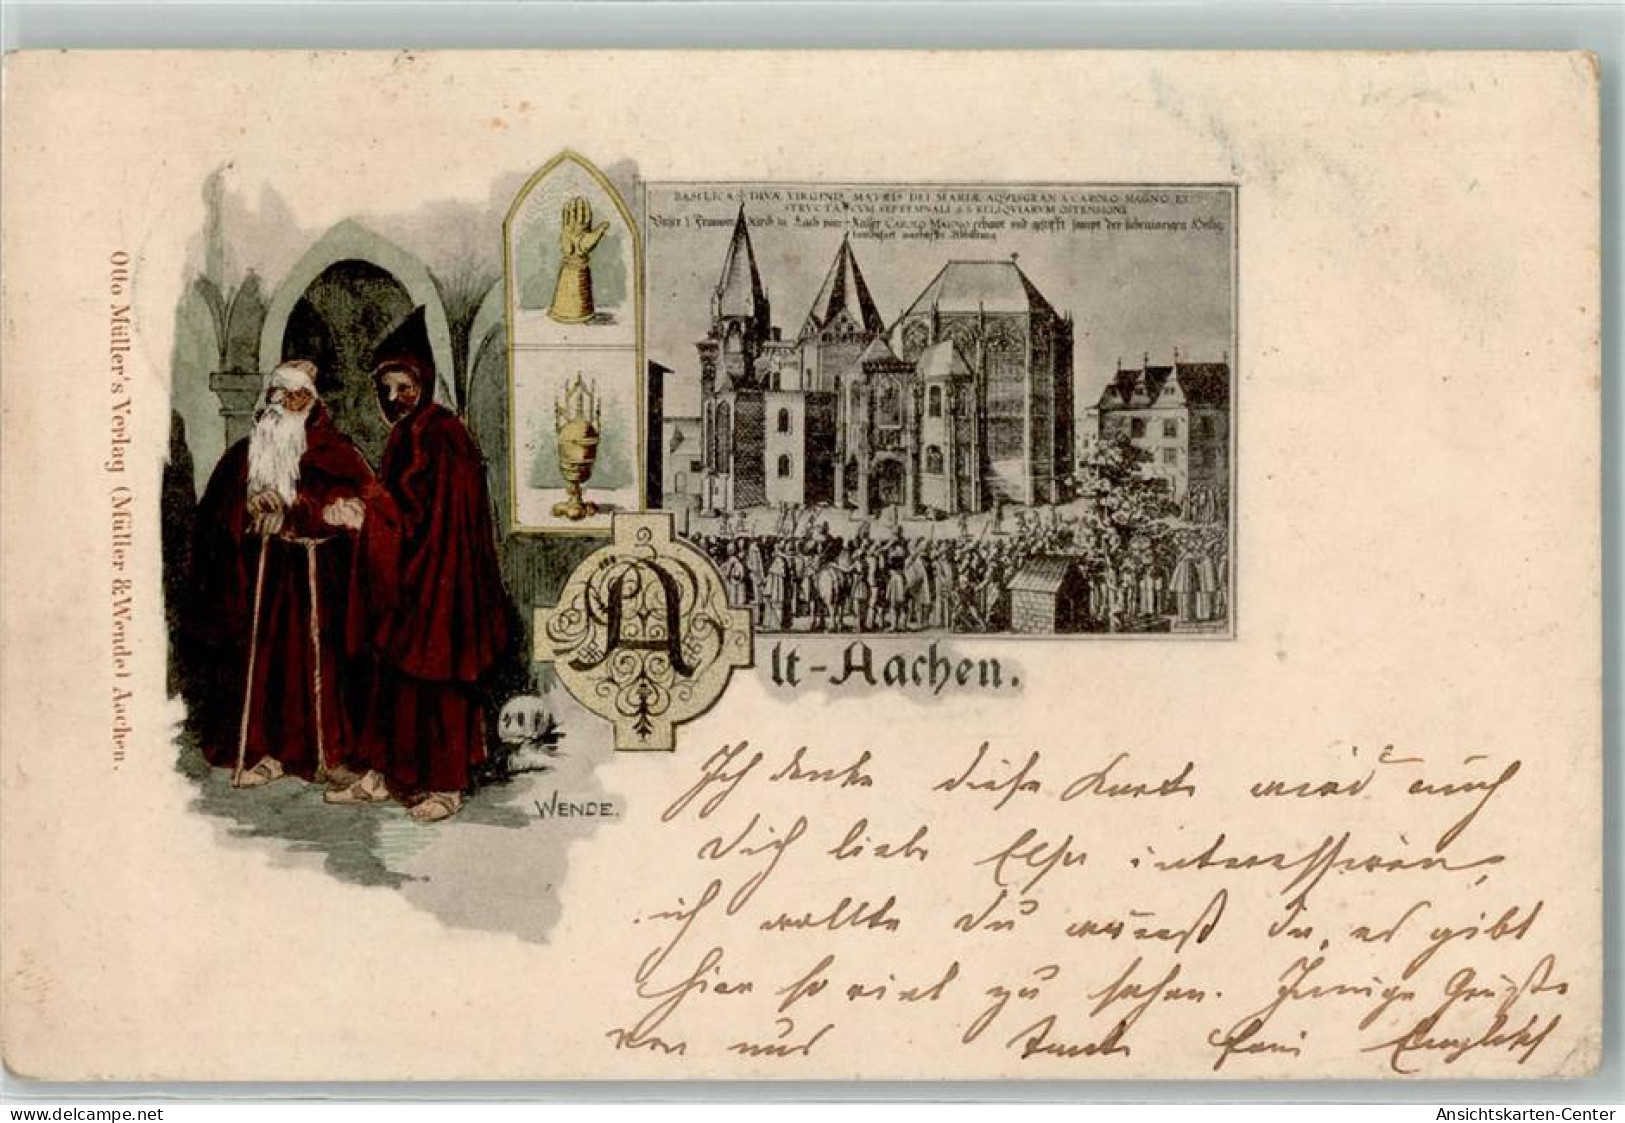 Otto Müller's Verlag (Müller & Wende) Aachen.
BASILICA DIVÆ VIRGINIS MATRIS DEI MARIÆ AQVISGRAN A CAROLO MAGNO EX
STRVCTA CVM SEPTENNALI S S RELIQVIARVM OSTENSIONE
Kirch zu Aach von Kaiser CAROLO MAGNO erbawt und gestifft sampt der siebenjarigen
Alt-Aachen.
WENDE.
Ich denke diese Karte wird auch
Dich liebe Else interessieren,
ich wollte Du wärest da, es gibt
hier so viel zu sehen. Innige Grüße
von uns Tante
delcampe.net
Ansichtskarten-Center